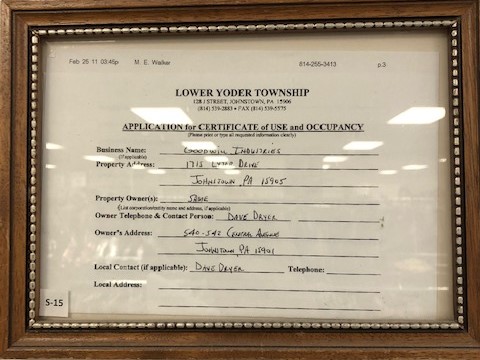 Feb 25 11 03:45p M. E. Walker 814-255-3413 p.3
LOWER YODER TOWNSHIP
128 J STREET, JOHNSTOWN, PA 15906
(814) 539-2883 • FAX (814) 539-5575
APPLICATION for CERTIFICATE of USE and OCCUPANCY
(Please print or type all requested information clearly)
Business Name: GOODWILL INDUSTRIES
(if applicable)
Property Address: 1715 LYTER DRIVE
JOHNSTOWN, PA 15905
Property Owner(s): SAME
(List corporation/entity name and address, if applicable)
Owner Telephone & Contact Person: DAVE DRYER
Owner's Address: 540-542 CENTRAL AVENUE
JOHNSTOWN, PA 15901
Local Contact (if applicable): DAVE DRYER Telephone:
Local Address:
S-15